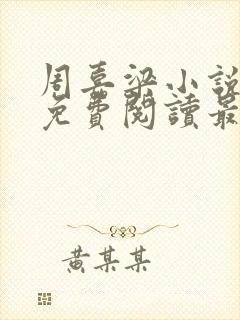 周喜梁小說
免費閱讀最
黃某某